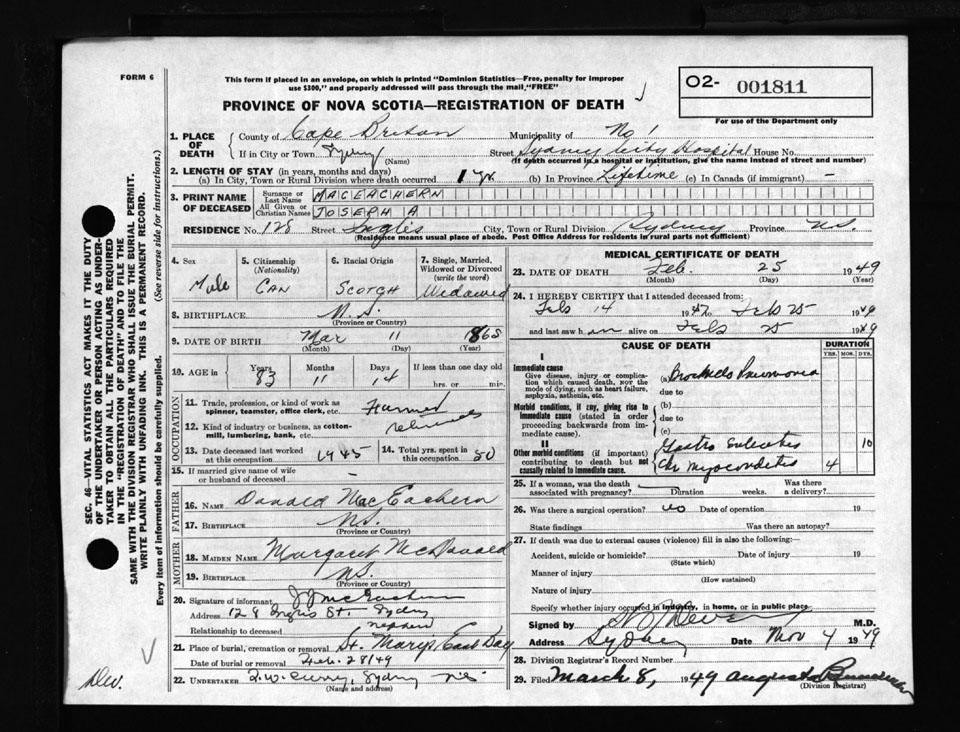 FORM 6
This form if placed in an envelope, on which is printed "Dominion Statistics—Free, penalty for improper
use $300," and properly addressed will pass through the mail, "FREE"
O2- 001811
For use of the Department only
PROVINCE OF NOVA SCOTIA—REGISTRATION OF DEATH
1. PLACE OF DEATH
County of Cape Breton Municipality of No 1
If in City or Town Sydney (Name) Street Sydney City Hospital House No.
(If death occurred in a hospital or institution, give the name instead of street and number)
2. LENGTH OF STAY (in years, months and days)
(a) In City, Town or Rural Division where death occurred 1 yr (b) In Province Lifetime (c) In Canada (if immigrant) –
3. PRINT NAME OF DECEASED
Surname or Last Name MACEACHERN
All Given or Christian Names JOSEPH A
RESIDENCE No. 128 Street Inglis City, Town or Rural Division Sydney Province NS.
(Residence means usual place of abode. Post Office Address for residents in rural parts not sufficient)
4. Sex Male
5. Citizenship (Nationality) CAN
6. Racial Origin SCOTCH
7. Single, Married, Widowed or Divorced (write the word) Widowed
8. BIRTHPLACE N.S.
(Province or Country)
9. DATE OF BIRTH Mar 11 1865
(Month) (Day) (Year)
10. AGE in Years 83 Months 11 Days 14 If less than one day old
hrs. or min.
OCCUPATION
11. Trade, profession, or kind of work as spinner, teamster, office clerk, etc. Farmer
12. Kind of industry or business, as cotton-mill, lumbering, bank, etc.
13. Date deceased last worked at this occupation 1945
14. Total yrs. spent in this occupation 50
15. If married give name of wife or husband of deceased –
FATHER
16. NAME Donald MacEachern
17. BIRTHPLACE NS.
(Province or Country)
MOTHER
18. MAIDEN NAME Margaret McDonald
19. BIRTHPLACE NS.
(Province or Country)
20. Signature of informant J J McEachern
Address 128 Inglis St. Sydney
Relationship to deceased nephew
21. Place of burial, cremation or removal St. Marys East Bay
Date of burial or removal Feb. 28/49
22. UNDERTAKER T. W. Curry, Sydney NS
(Name and address)
MEDICAL CERTIFICATE OF DEATH
23. DATE OF DEATH Feb. 25 1949
(Month) (Day) (Year)
24. I HEREBY CERTIFY that I attended deceased from
Feb 14 1947 to Feb 25 1949
and last saw him alive on Feb 25 1949
CAUSE OF DEATH
DURATION
YRS. MOS. DYS.
I
Immediate cause
Give disease, injury or complication which caused death, NOT the mode of dying, such as heart failure, asphyxia, asthenia, etc.
(a) Broncho Pneumonia
due to
Morbid conditions, if any, giving rise to immediate cause (stated in order proceeding backwards from immediate cause).
(b)
due to
(c)
II
Other morbid conditions (if important) contributing to death but not causally related to immediate cause.
Gastro Enteritis 10
Chr Myocarditis 4
25. If a woman, was the death associated with pregnancy? Duration weeks. Was there a delivery?
26. Was there a surgical operation? no Date of operation 19
State findings Was there an autopsy?
27. If death was due to external causes (violence) fill in also the following:
Accident, suicide or homicide? Date of injury 19
(State which)
Manner of injury
(How sustained)
Nature of injury
Specify whether injury occurred in industry, in home, or in public place
Signed by M.D.
Address Sydney Date 4 1949
28. Division Registrar's Record Number
29. Filed March 8, 1949
(Division Registrar)
SEC. 46—VITAL STATISTICS ACT MAKES IT THE DUTY
OF THE UNDERTAKER OR PERSON ACTING AS UNDERTAKER TO OBTAIN ALL THE PARTICULARS REQUIRED
IN THE "REGISTRATION OF DEATH" AND TO FILE THE
SAME WITH THE DIVISION REGISTRAR WHO SHALL ISSUE THE BURIAL PERMIT.
WRITE PLAINLY WITH UNFADING INK. THIS IS A PERMANENT RECORD.
Every item of information should be carefully supplied. (See reverse side for instructions.)